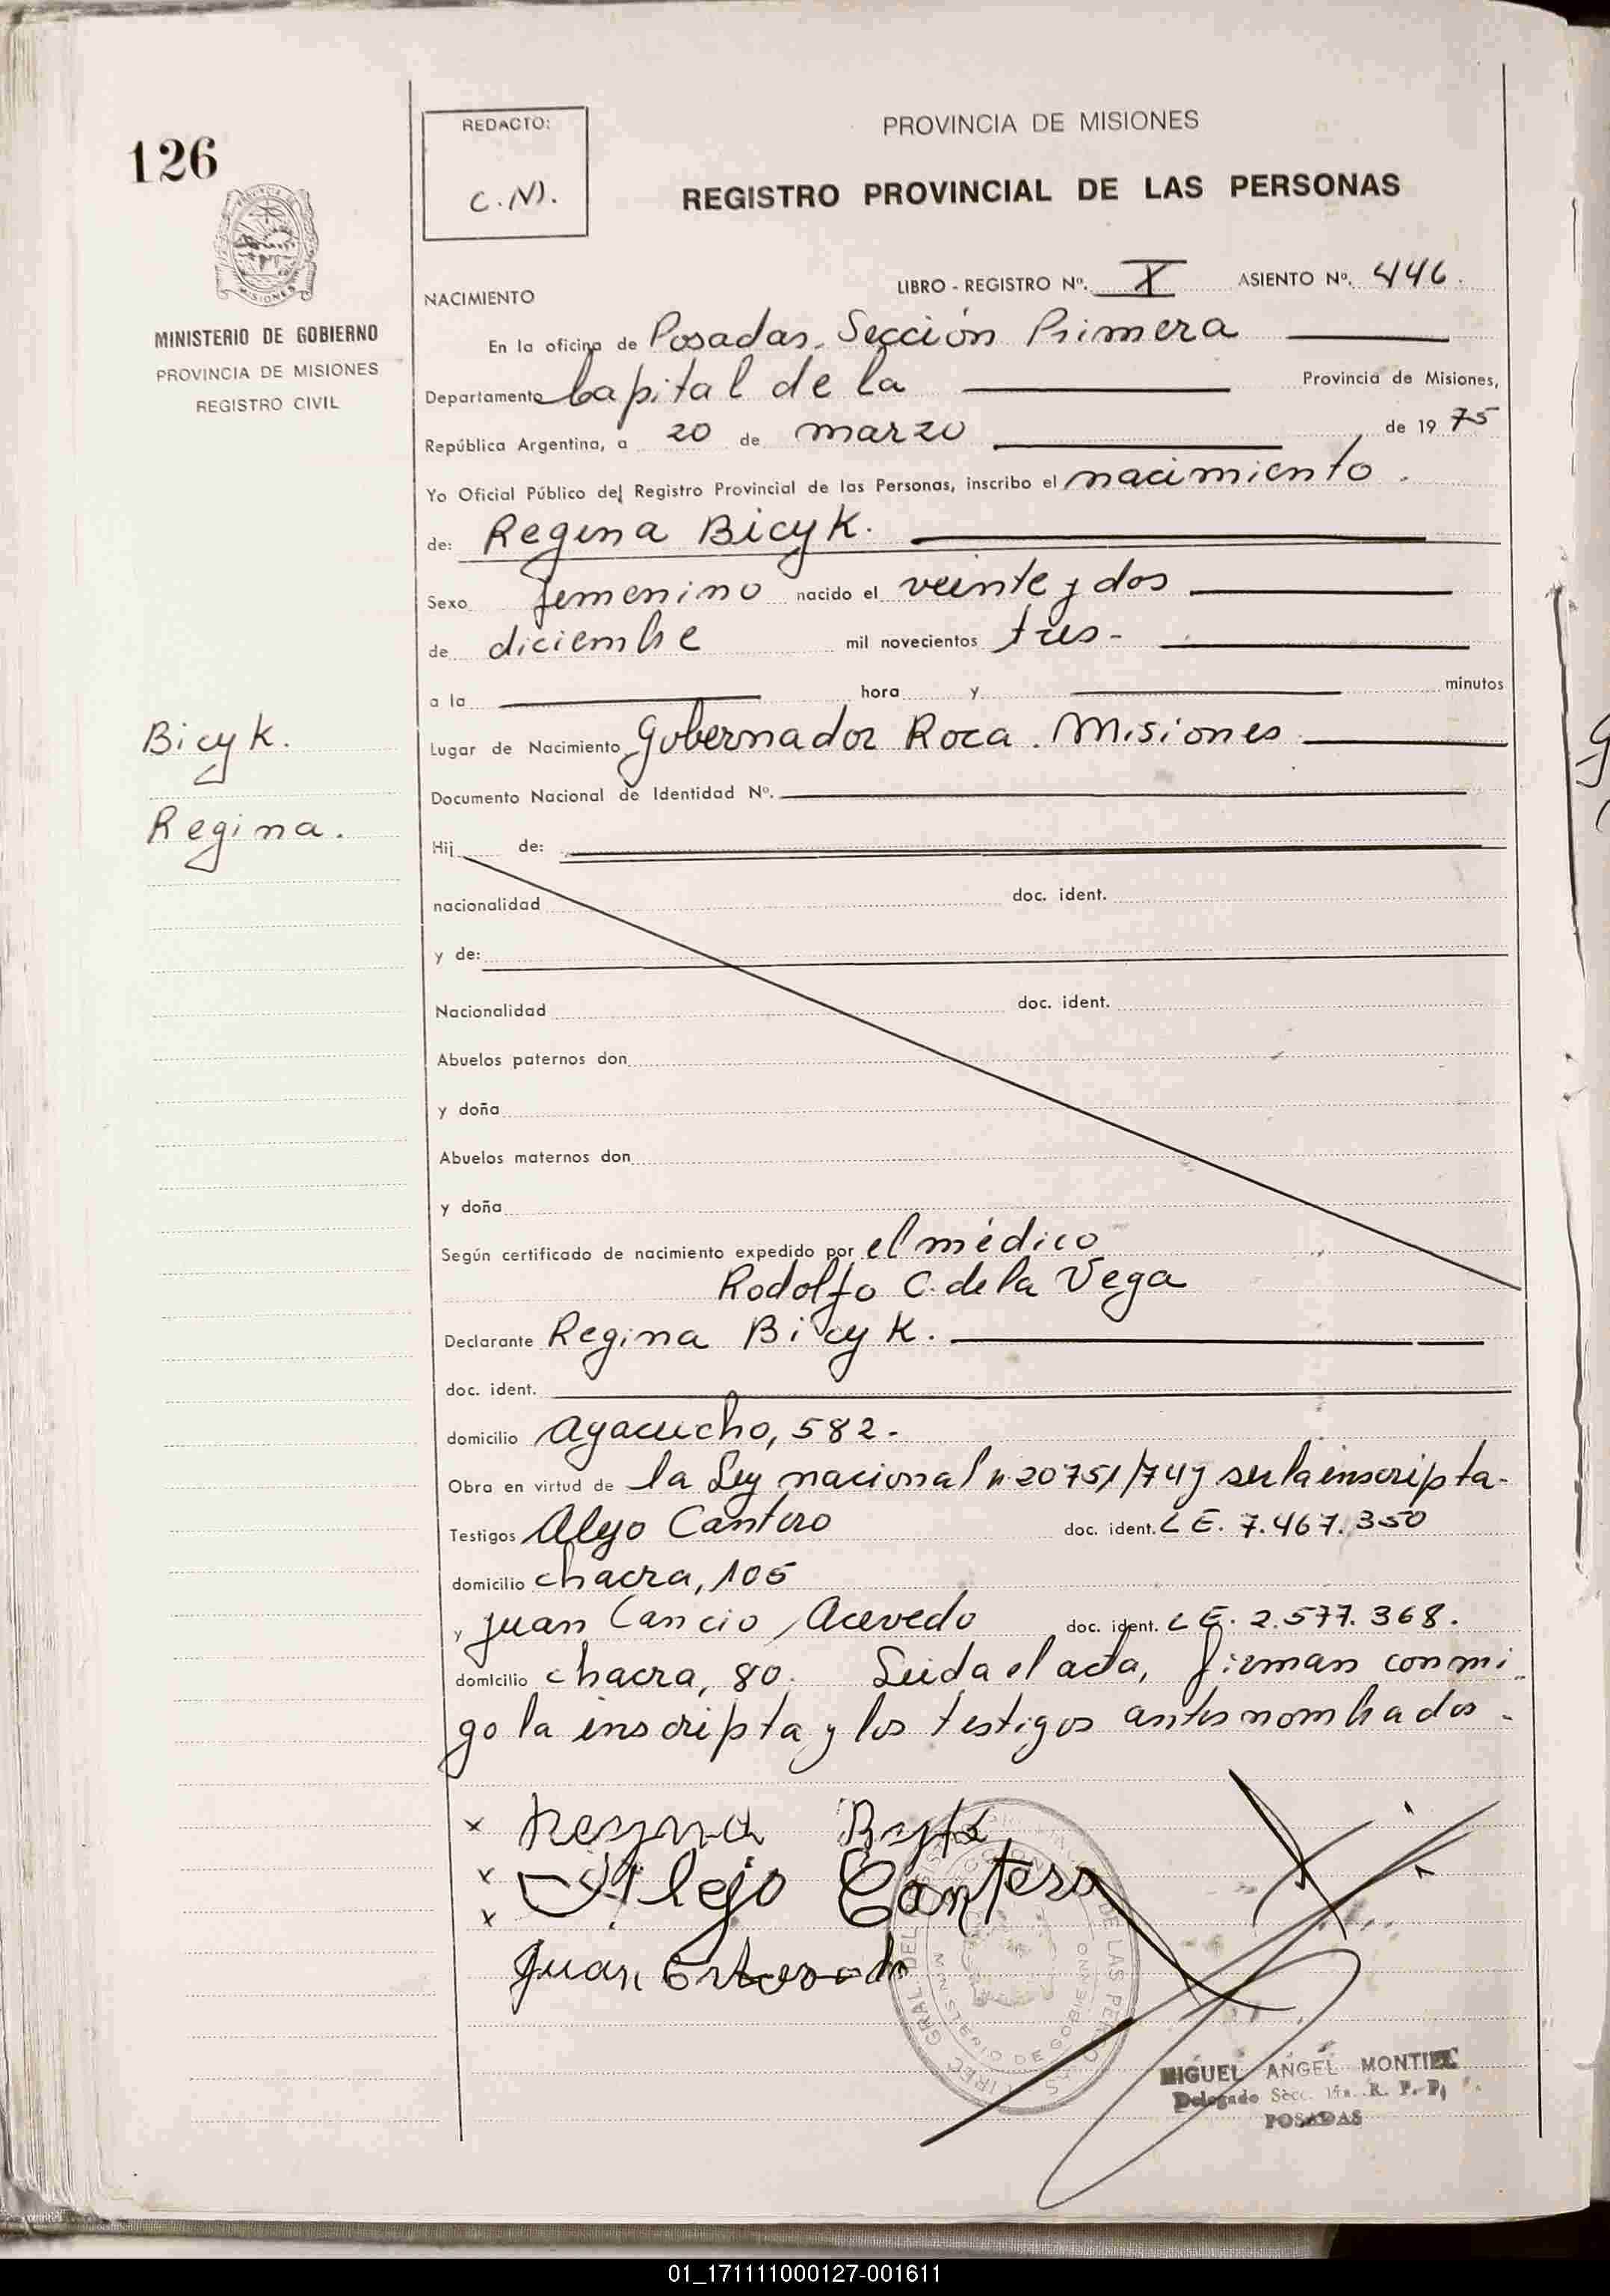 126
REDACTO:
C.N.
PROVINCIA DE MISIONES
REGISTRO PROVINCIAL DE LAS PERSONAS
MISIONES
MINISTERIO DE GOBIERNO
PROVINCIA DE MISIONES
REGISTRO CIVIL
NACIMIENTO
LIBRO - REGISTRO Nº. X ASIENTO Nº. 446.
En la oficina de Posadas. Sección Primera
Departamento Capital de la Provincia de Misiones,
República Argentina, a 20 de marzo de 1975
Yo Oficial Público del Registro Provincial de las Personas, inscribo el nacimiento.
de: Regina Bicyk.
Sexo femenino nacido el veinte y dos
de diciembre mil novecientos tres-
a la hora y minutos
Bicyk.
Regina.
Lugar de Nacimiento Gobernador Roca. Misiones
Documento Nacional de Identidad Nº.
Hij de:
nacionalidad doc. ident.
y de:
Nacionalidad doc. ident.
Abuelos paternos don
y doña
Abuelos maternos don
y doña
Según certificado de nacimiento expedido por el médico
Rodolfo C. de la Vega
Declarante Regina Bicyk.
doc. ident.
domicilio Ayacucho, 582.
Obra en virtud de la Ley nacional n 20751/74 y ser la inscripta-
Testigos Alejo Cantero doc. ident. L E. 7.467.350
domicilio chacra, 106
y Juan Cancio Acevedo doc. ident. L E. 2.577.368.
domicilio chacra, 80. Leida el acta, firman conmi
go la inscripta y los testigos antes nombrados.
Alejo Cantero
Juan
MINISTERIO DE GOBIERNO
MIGUEL ANGEL MONTIEL
Delegado Secc. 1ra. R. P. P.
POSADAS
01_171111000127-001611